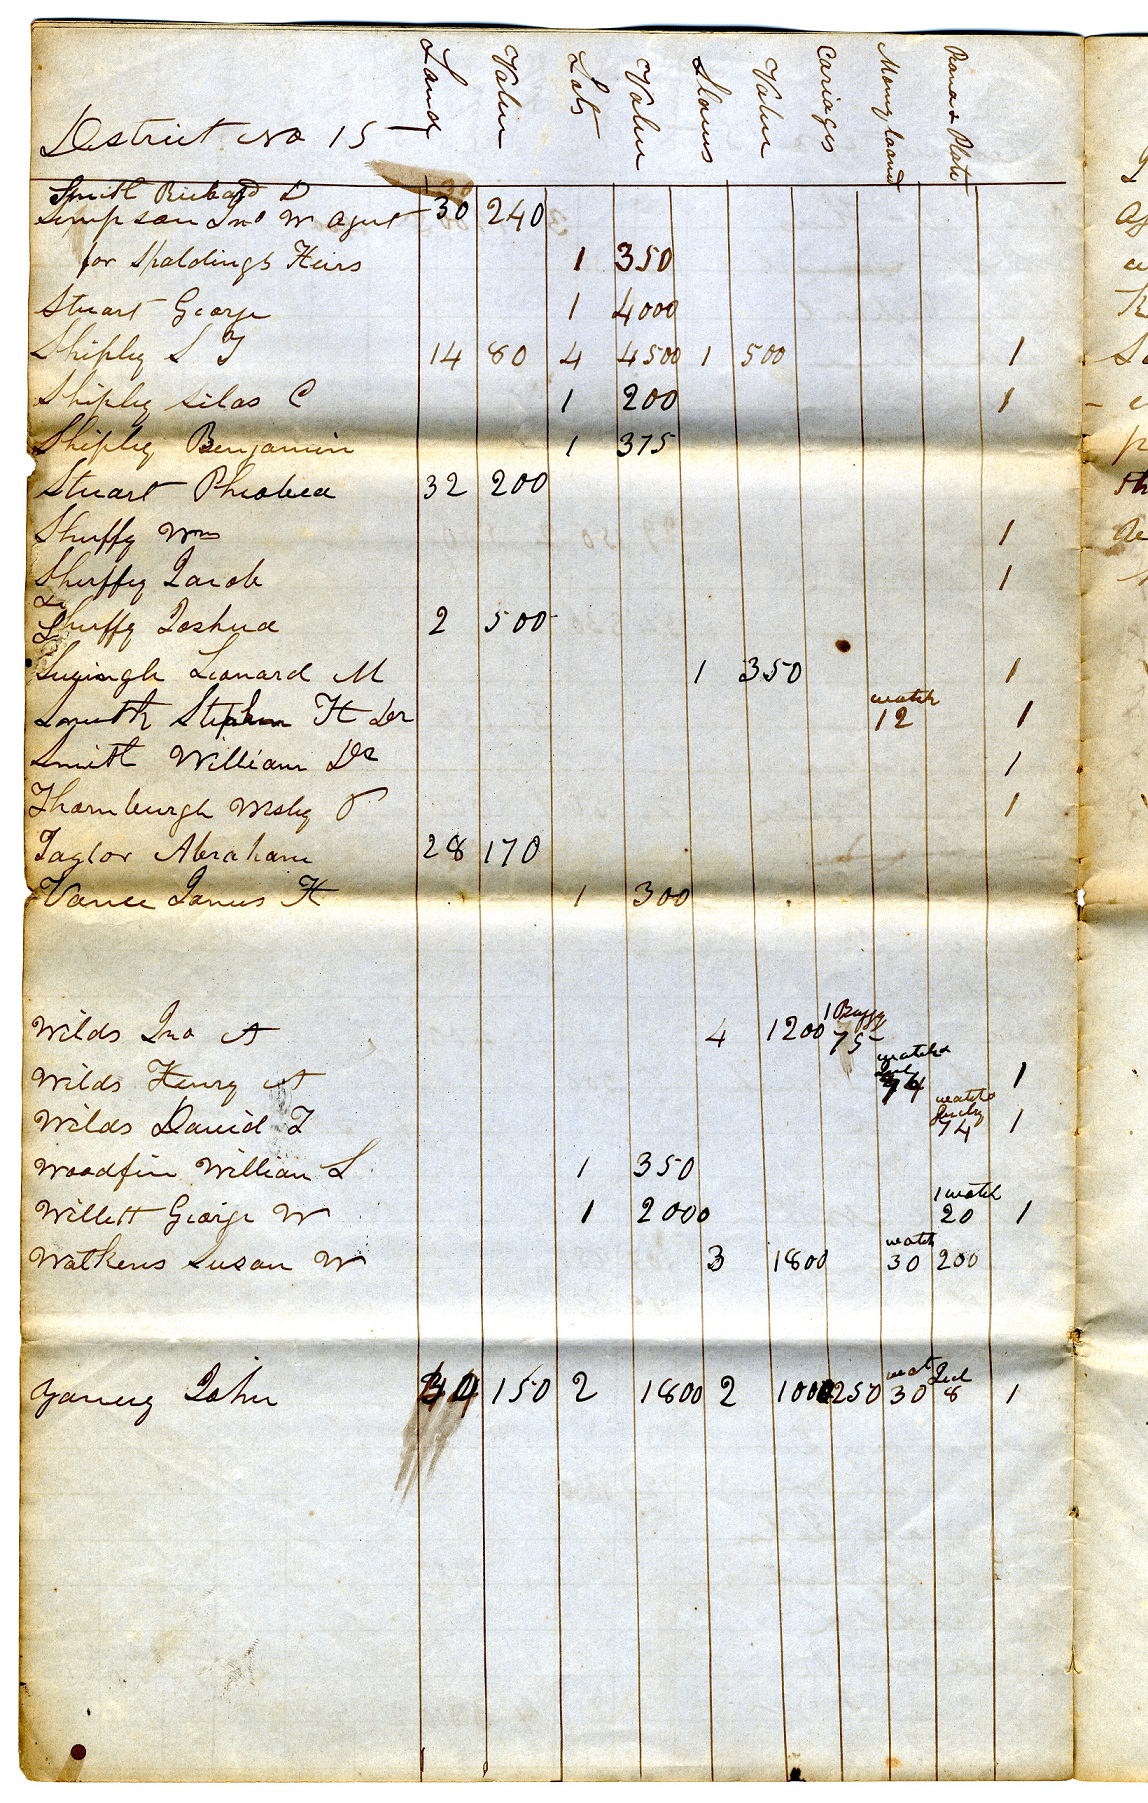 District No 15 Land Value Lots Value Slaves Value Cariages Mony loand Piana & Plate
Smith Richard D
Simpson Jno W Agent 30 240
for Spaldings Heirs 1 350
Stuart George 1 4000
Shipley S T 14 80 4 4500 1 500 1
Shipley Silas C 1 200 1
Shipley Benjamin 1 375
Stuart Pheobea 32 200
Sheffy Wm 1
Sheffey Jacob 1
Sheffy Joshua 2 500
Leonard M 1 350 1
Smith Stephen H Dr watch 12 1
Smith William Dr 1
Thornburgh 1
Taylor Abraham 28 170
Vance James H 1 300
Wilds Jno A 4 1200 1 Buggy 75
Wilds Henry A watch & 74 1
Wilds David T watch & 74 1
Woodfin William L 1 350
Willett George W 1 2000 1 watch 20 1
Watkens Susan W 3 1800 watch 30 200
John 150 2 1800 2 1000 250 wat 30 8 1